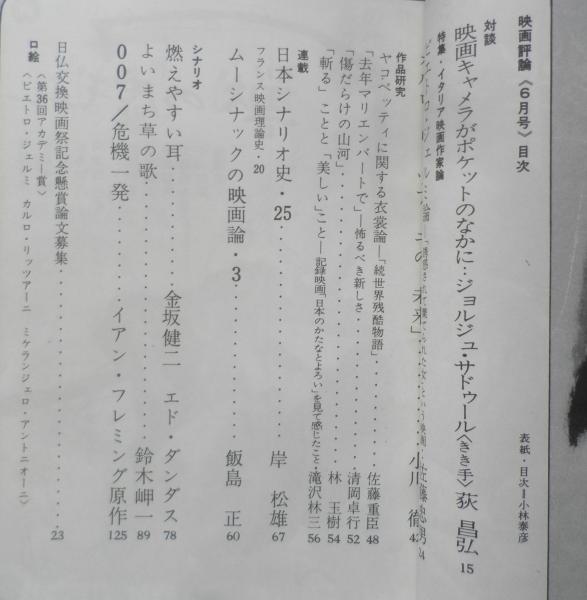 映画評論〈6月号〉目次
表紙・目次＝小林泰彦
対談
映画キャメラがポケットのなかに…ジョルジュ・サドゥール〈きき手〉荻 昌弘 15
特集・イタリア映画作家論
の 未来」 小川 徹 42
作品研究
ヤコペッティに関する衣裳論―「続世界残酷物語」 佐藤重臣 48
「去年マリエンバートで」―怖るべき新しさ 清岡卓行 52
「傷だらけの山河」 林 玉樹 54
「斬る」ことと「美しい」こと―記録映画「日本のかたなとよろい」を見て感じたこと・滝沢林三 56
連載
日本シナリオ史・25 岸 松雄 67
フランス映画理論史・20
ムーシナックの映画論・3 飯島 正 60
シナリオ
燃えやすい耳 金坂健二 エド・ダンダス 78
よいまち草の歌 鈴木岬一 89
007/危機一発 イアン・フレミング原作 125
日仏交換映画祭記念懸賞論文募集 23
口絵
〈第36回アカデミー賞〉
〈ピエトロ・ジェルミ カルロ・リッツアーニ ミケランジェロ・アントニオーニ〉